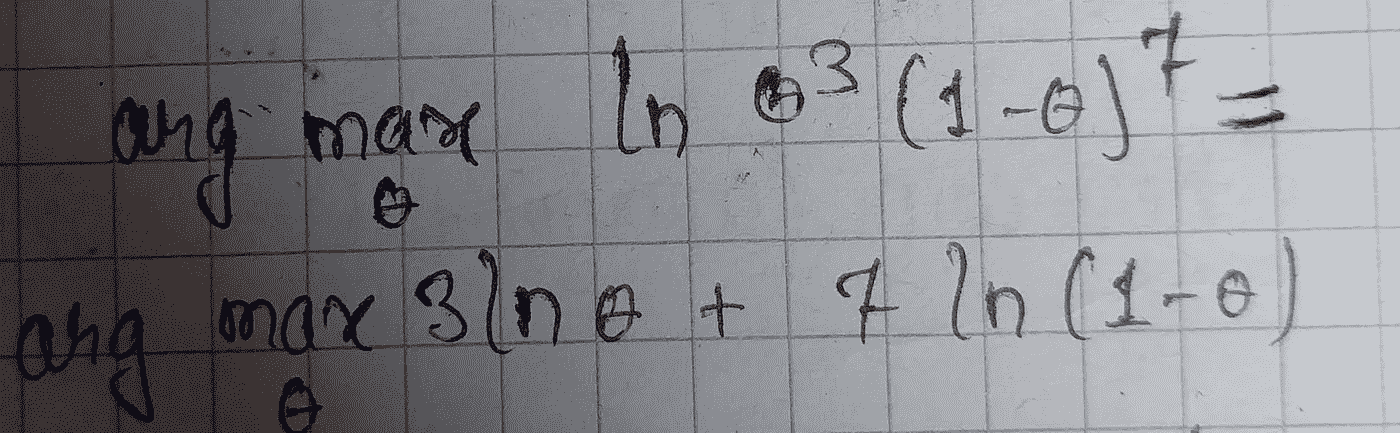 arg max ln θ³ (1-θ)⁷ =
θ
arg max 3 ln θ + 7 ln (1-θ)
θ